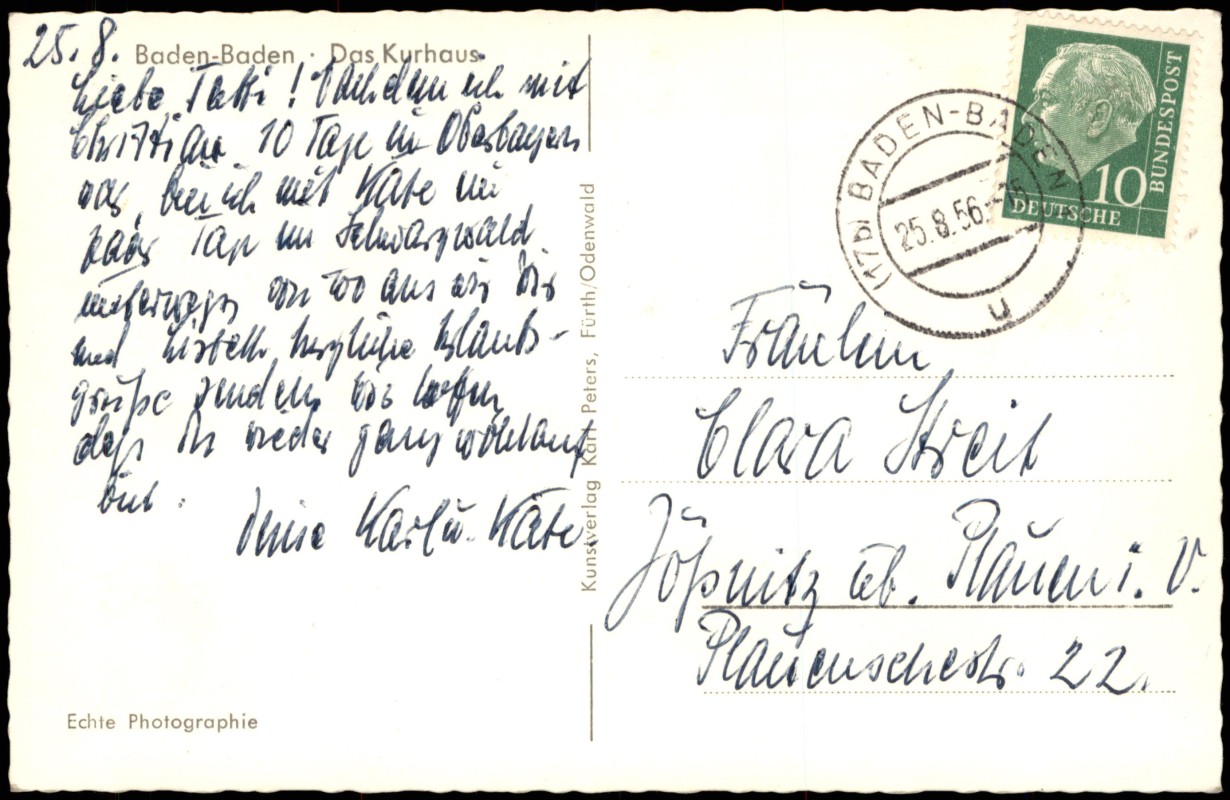 25. 8.
Baden-Baden · Das Kurhaus
Liebe Tatti! Nachdem ich mit
Christian 10 Tage in Oberbayern
war, bin ich mit Käte ein
paar Tage im Schwarzwald
unterwegs von wo aus wir Dir
und herzliche Urlaubs-
grüße senden. Wir hoffen,
daß Ihr wieder ganz wohlauf
seid.
Deine Karl u. Käte.
Echte Photographie
Kunstverlag Karl Peters, Fürth/Odenwald
(17b) BADEN-BADEN
25.8.56.
u
10
DEUTSCHE
BUNDESPOST
Fräulein
Clara Streit
Jößnitz üb. Plauen i. V.
Plauenschestr. 22.